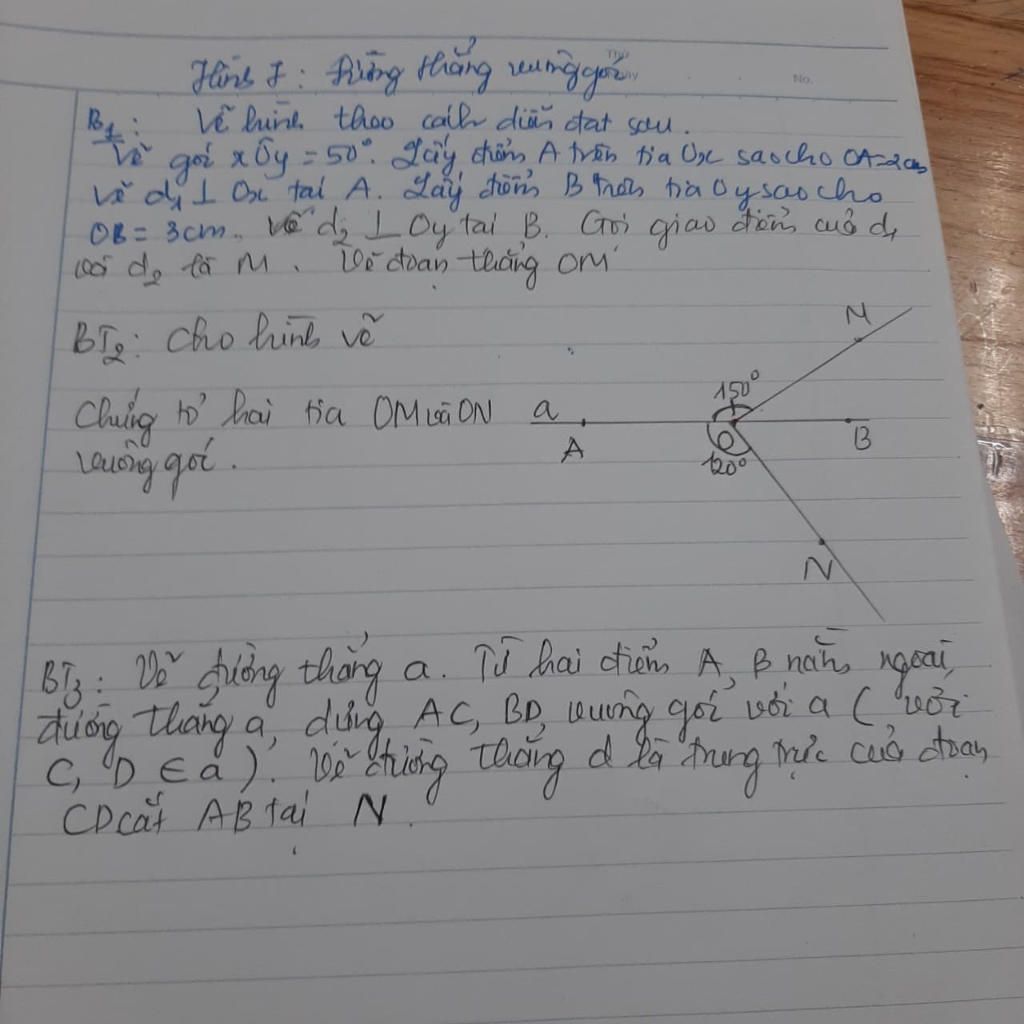 Hình 7: Đường thẳng vuông góc
No.
B1: Vẽ hình theo cách diễn đạt sau.
Vẽ góc xÔy = 50°. Lấy điểm A trên tia Ox sao cho OA = 2cm
Vẽ d1 ⊥ Ox tại A. Lấy điểm B trên tia Oy sao cho
OB = 3cm. Vẽ d2 ⊥ Oy tại B. Gọi giao điểm của d1
với d2 là M. Vẽ đoạn thẳng OM
BT2: Cho hình vẽ
M
150°
Chứng tỏ hai tia OM và ON
a
A
O
B
vuông góc.
120°
N
BT3: Vẽ đường thẳng a. Từ hai điểm A, B nằm ngoài
đường thẳng a, dựng AC, BD vuông góc với a (với
C, D ∈ a). Vẽ đường thẳng d là trung trực của đoạn
CD cắt AB tại N.